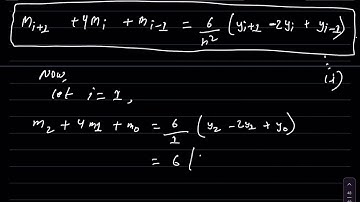 m_{i+1} + 4m_i + m_{i-1} = 6/h² (y_{i+1} - 2y_i + y_{i-1})
Now,
let i = 1,
m_2 + 4m_1 + m_0 = 6/1 (y_2 - 2y_1 + y_0)
= 6 (